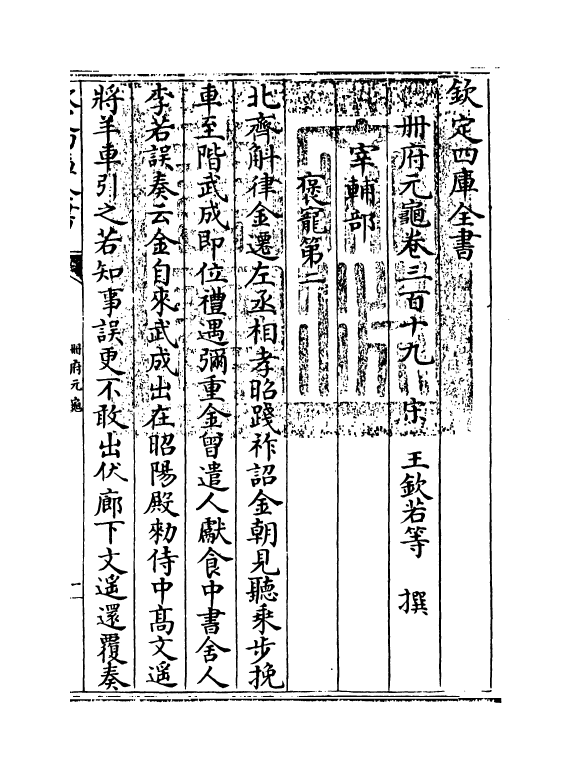 欽定四庫全書
冊府元龜卷三百十九 宋 王欽若等 撰
宰輔部
褒寵第二
北齊斛律金遷左丞相孝昭踐祚詔金朝見聽乘步挽
車至階武成即位禮遇彌重金曾遣人獻食中書舍人
李若誤奏云金自來武成出在昭陽殿勑侍中髙文遥
將羊車引之若知事誤更不敢出伏廊下文遥還覆奏
冊府元龜